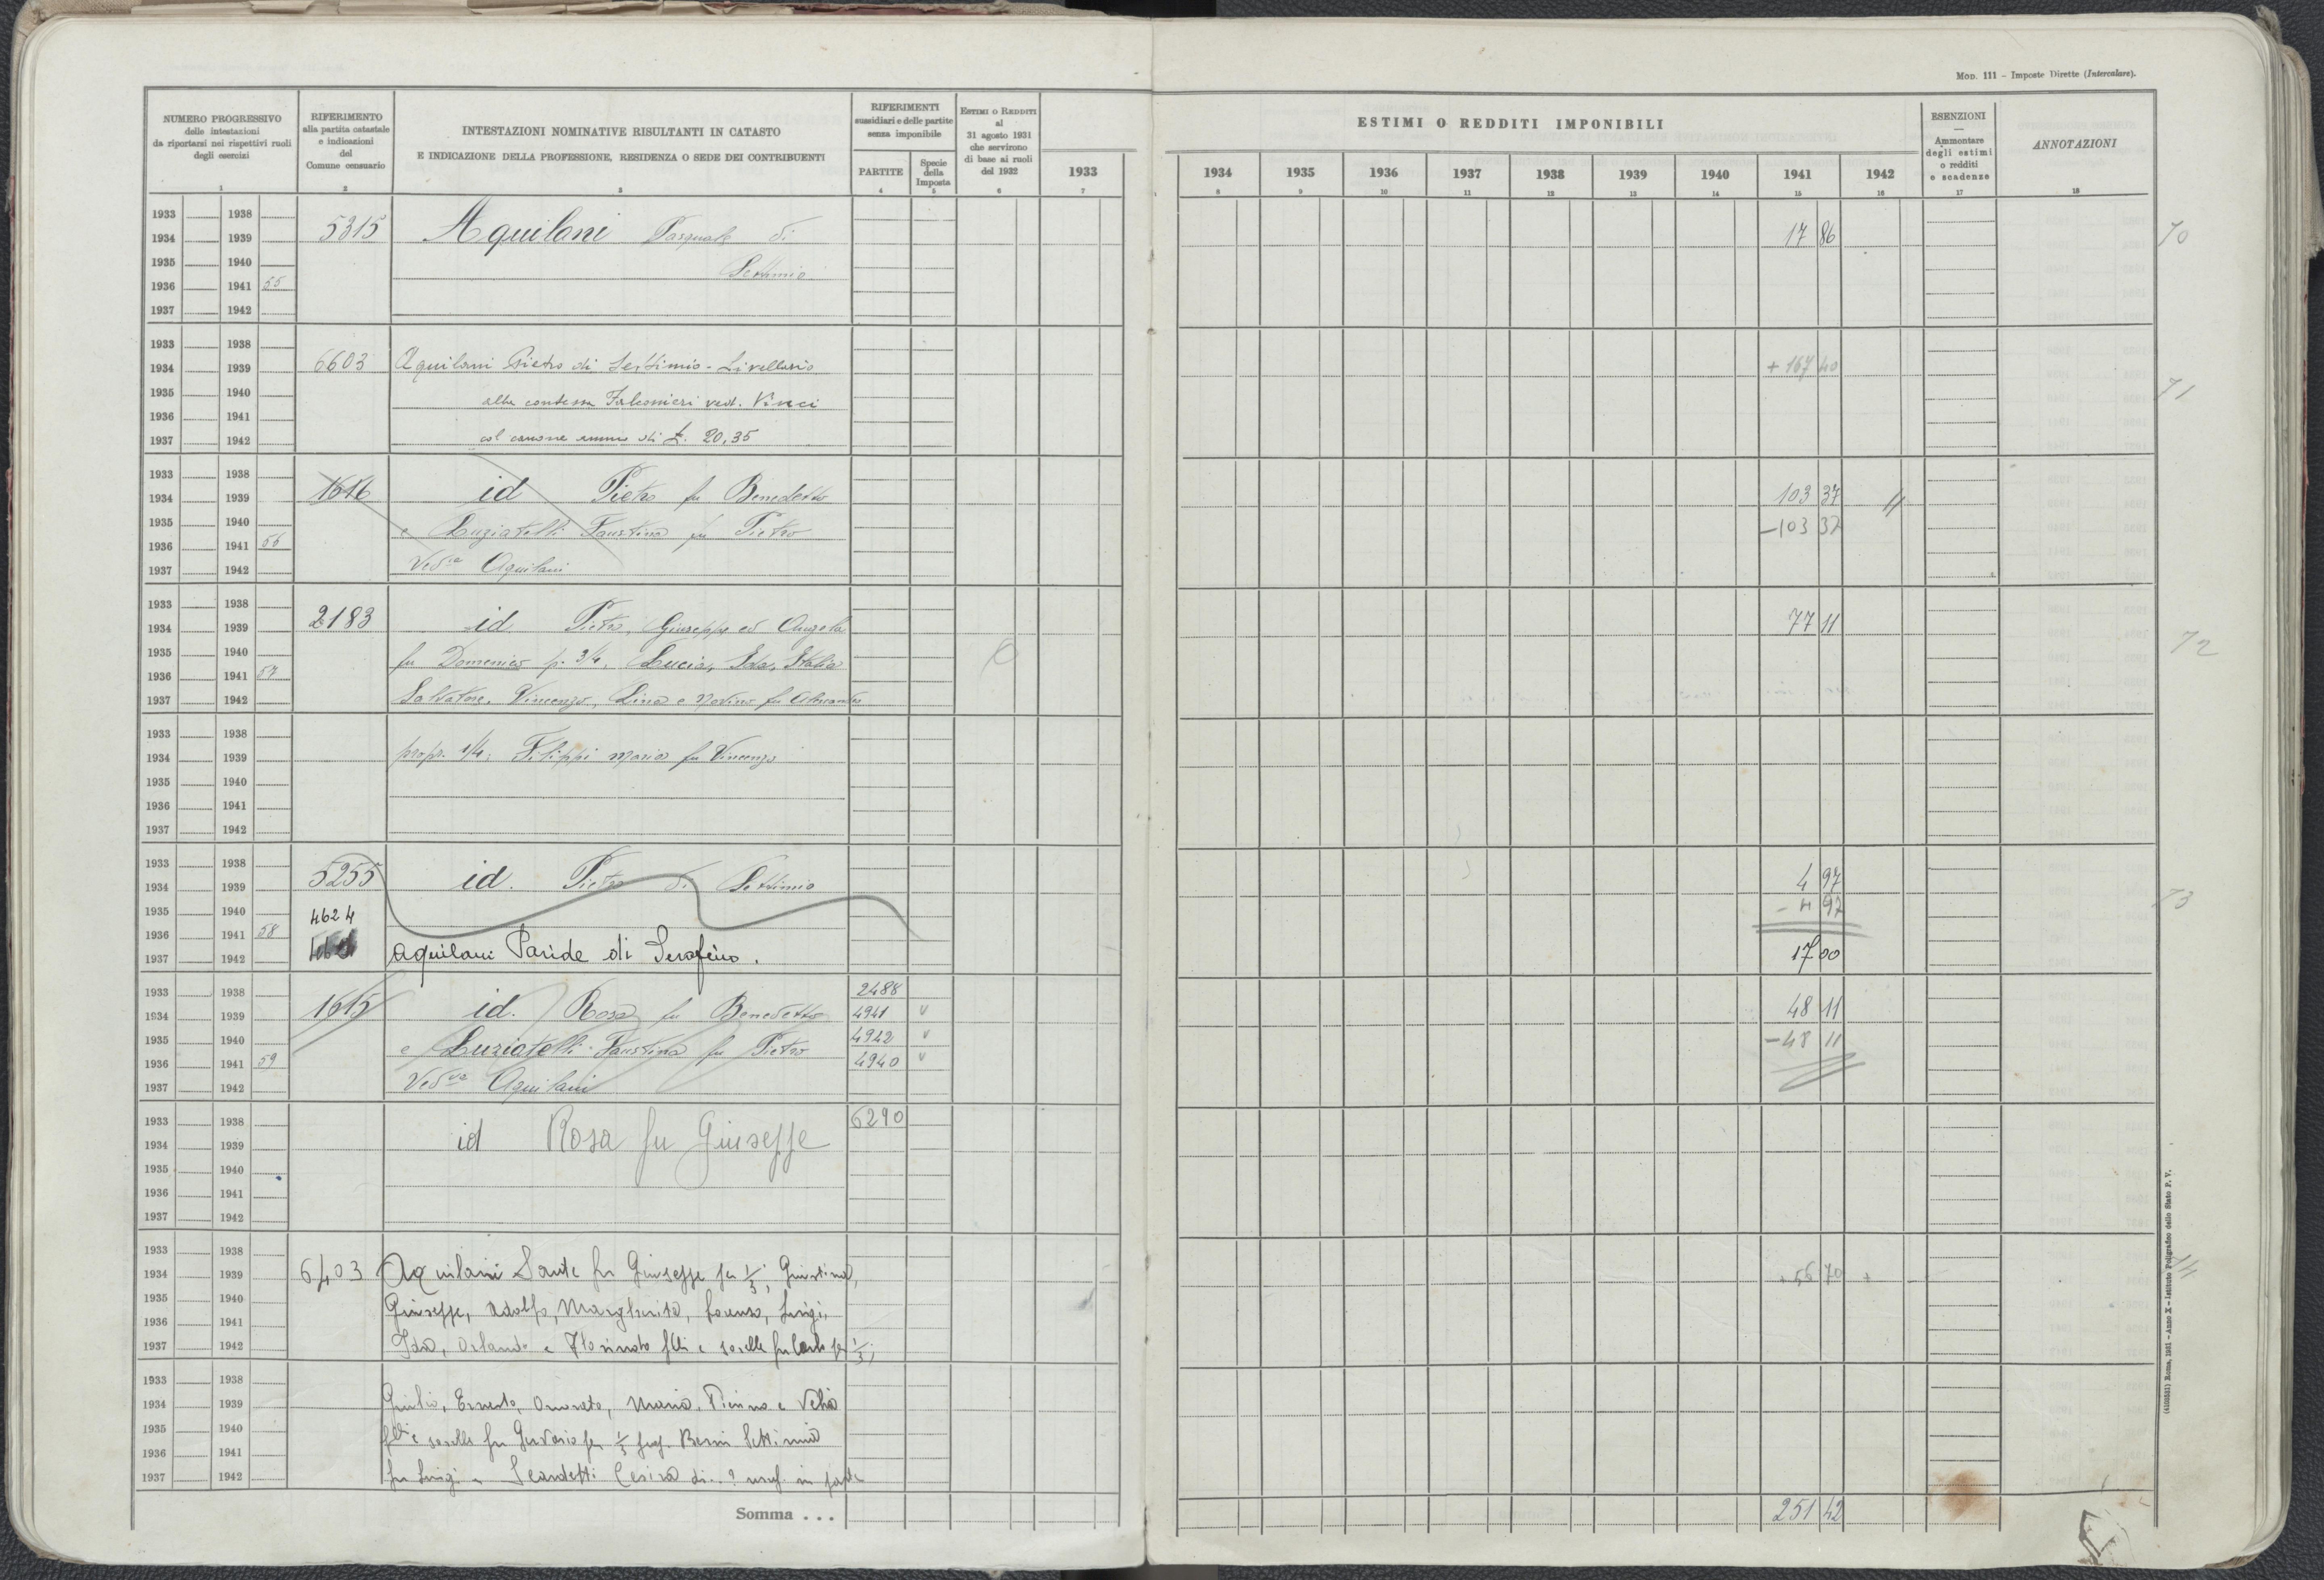 MOD. 111 – Imposte Dirette (Intercalare).
NUMERO PROGRESSIVO
delle intestazioni
da riportarsi nei rispettivi ruoli
degli esercizi
1
RIFERIMENTO
alla partita catastale
e indicazioni
del
Comune censuario
2
INTESTAZIONI NOMINATIVE RISULTANTI IN CATASTO
E INDICAZIONE DELLA PROFESSIONE, RESIDENZA O SEDE DEI CONTRIBUENTI
3
RIFERIMENTI
sussidiari e delle partite
senza imponibile
PARTITE
4
Specie
della
Imposta
5
ESTIMI O REDDITI
al
31 agosto 1931
che servirono
di base ai ruoli
del 1932
6
1933
7
ESTIMI O REDDITI IMPONIBILI
1934 1935 1936 1937 1938 1939 1940 1941 1942
8 9 10 11 12 13 14 15 16
ESENZIONI
—
Ammontare
degli estimi
o redditi
e scadenze
17
ANNOTAZIONI
18
1933 1938
1934 1939 5315 Aquilani Pasquale di 17 86 70
1935 1940 Settimio
1936 1941 55
1937 1942
1933 1938
1934 1939 6603 Aquilani Pietro di Settimio - Livellario + 167 40
1935 1940 alla contessa Falconieri ved. Vinci 71
1936 1941
1937 1942 col canone annuo di £. 20,35
1933 1938
1934 1939 1616 id Pietro fu Benedetto 103 37
1935 1940 e Luziatelli Faustina fu Pietro – 103 37
1936 1941 56
1937 1942 Ved.va Aquilani
1933 1938
1934 1939 2183 id Pietro, Giuseppe ed Angela 77 11
1935 1940 fu Domenico p. 3/4, Lucia, Ida, Italia 72
1936 1941 57
1937 1942 Salvatore, Vincenzo, Lina e
1933 1938
1934 1939 propr. 1/4; Filippi Maria fu Vincenzo
1935 1940
1936 1941
1937 1942
1933 1938
1934 1939 5255 id. Pietro di Settimio 4 97
1935 1940 4624 – 4 97 73
1936 1941 58
1937 1942 Aquilani Paride di Serafino. 17 00
1933 1938 2488
1934 1939 1615 id. Rosa fu Benedetto 4941 v 48 11
1935 1940 e Luziatelli Faustina fu Pietro 4942 v – 48 11
1936 1941 59 4940 v
1937 1942 Ved.va Aquilani
1933 1938 6290
1934 1939 id Rosa fu Giuseppe
1935 1940
1936 1941
1937 1942
1933 1938
1934 1939 6403 Aquilani Sante fu Giuseppe per 1/3; Giustina, + 56 70 +
1935 1940 Giuseppe, Adolfo, Margherita, Lorenzo, Luigi,
1936 1941
1937 1942 Ida, Orlando e f.lli e sorelle fu Carlo per 1/3;
1933 1938
1934 1939 Giulio, Ernesto, Onorato, Maria, Pierina e Velia
1935 1940 f.lli e sorelle fu Gervasio per 1/3 Settimia
1936 1941
1937 1942 fu Luigi e Scardetti Cesira di..? usuf. in parte
Somma . . . 251 42
(4103581) Roma, 1931 – Anno X – Istituto Poligrafico dello Stato P. V.